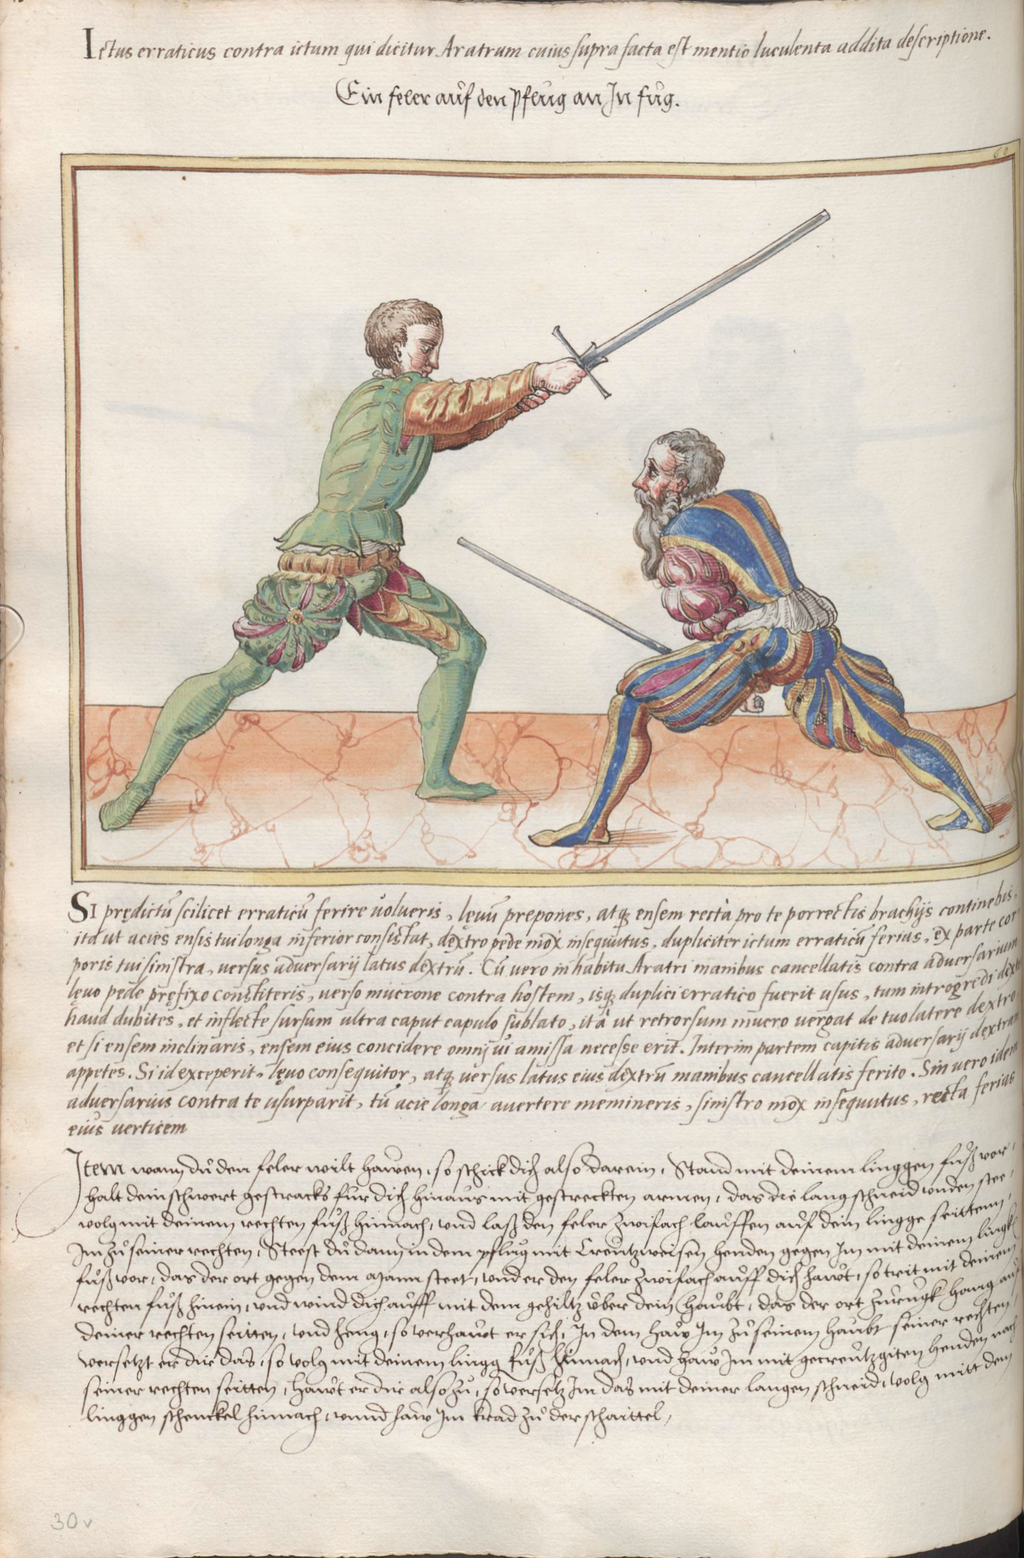 Ictus erraticus contra ictum qui dicitur Aratrum cuius supra facta est mentio luculenta addita descriptione.
Ein feler auf den Pflug an In fug.
SI prędictū scilicet erraticū ferire uolueris, leuū prepones, atq; ensem rectà pro te porrectis brachijs continebis,
ita ut acies ensis tui longa inferior consistat, dextro pede mox insequutus, dupliciter ictum erraticū ferias, ex parte cor
poris tui sinistra, uersus aduersarij latus dextrū. Cū uero in habitu Aratri manibus cancellatis contra aduersarium
lęuo pede pręfixo constiteris, uerso mucrone contra hostem, isq; duplici erratico fuerit usus, tum introgredi dex
haud dubites, et inflecte sursum ultra caput capulo sublato, itā ut retrorsum mucro uergat de tuo latere dextro
et si ensem inclinaris, ensem eius concidere omni ui amissa necesse erit. Interim partem capitis aduersarij dextram
appetes. Si id exceperit, lęuo consequitor, atq; uersus latus eius dextrū manibus cancellatis ferito. Sin uero idem
aduersarius contra te usurparit, tū acie longa auertere memineris, sinistro mox insequutus, recta ferias
eius uerticem
Item wann dů den feler wilt hawen, so schick dich also darein, Stand mit deinem linggen fůß vor,
halt dein schwert gestracks für dich hinaus mit gestreckten armen, das die lang schneid unden stee,
volg mit deinem rechten fůß hinnach, und laß den feler zwifach lauffen auf dein lingge seitten,
Im zů seiner rechten, Steest dů dann in dem pflůg mit Creutzweisen henden gegen Im mit deinem lingk
fůß vor, das der ort gegen dem Mann steet, und er den feler zwifach auff dich hawt, so trit mit deinem
rechten fůß hinein, und wind dich auff mit dem gehiltz über dein haubt, das der ort zurugk hang auf
deiner rechten seitten, und heng, so verhawt er sich, In dem haw Im zů seinem haubt seiner rechten,
versetzt er dir das, so volg mit deinem lingg fůß hinnach, und haw Im mit gecreutzgiten henden nach
seiner rechten seitten, hawt er dir also zů, so versetz Im das mit deiner langen schneid, volg mitt dem
linggen schenckel hinnach, unnd haw Im krad zů der schaittel,
30v